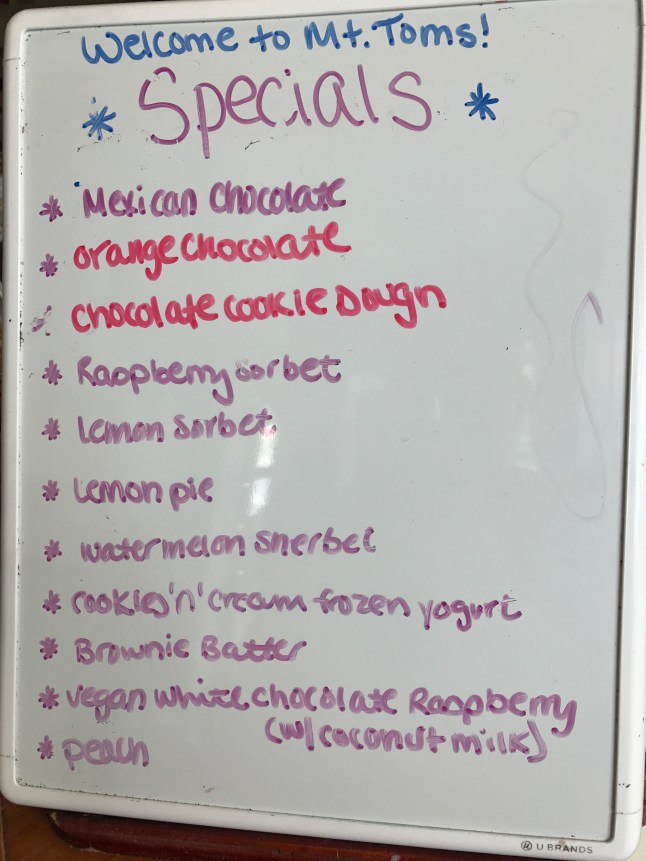 Welcome to Mt. Toms!
* Specials *
* Mexican Chocolate
* orange chocolate
* chocolate cookie Dough
* Raspberry sorbet
* Lemon Sorbet
* Lemon pie
* watermelon sherbet
* cookies 'n' cream frozen yogurt
* Brownie Batter
* vegan white chocolate Raspberry
(w/ coconut milk)
* peach
U BRANDS